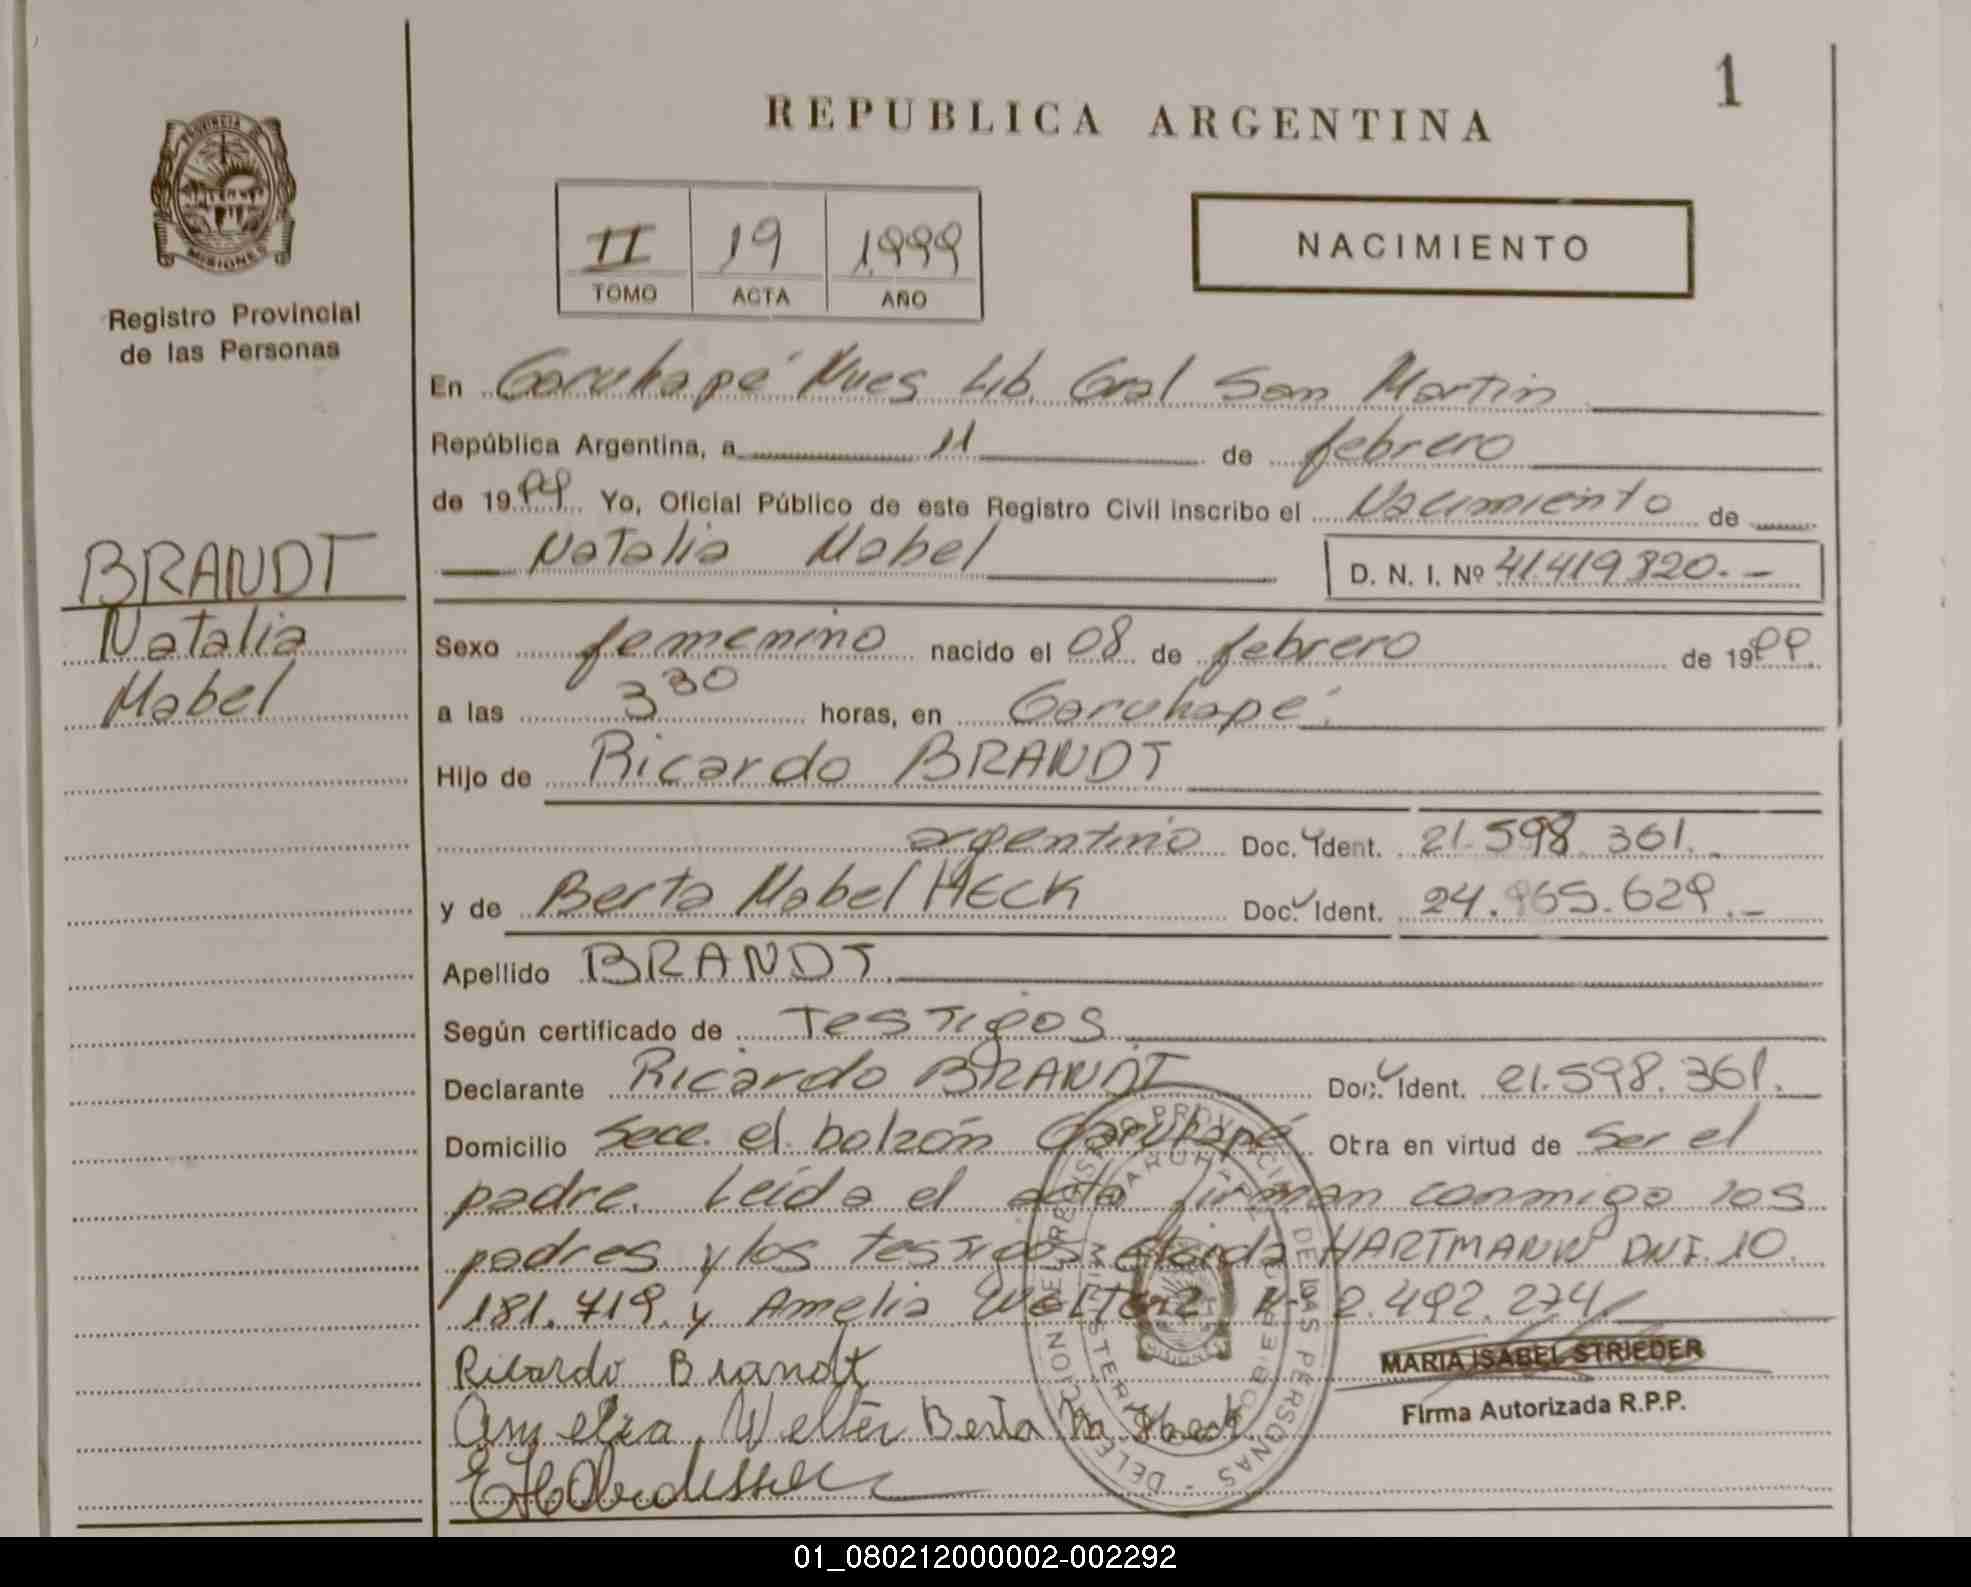 1
REPUBLICA ARGENTINA
PROVINCIA DE
MISIONES
Registro Provincial
de las Personas
II 19 1.999
TOMO ACTA AÑO
NACIMIENTO
En Garuhapé Mues Lib. Gral San Martin
República Argentina, a 11 de febrero
de 1999 Yo, Oficial Público de este Registro Civil inscribo el Nacimiento de
Natalia Mabel D. N. I. Nº 41.419.320.-
BRANDT
Natalia
Mabel
Sexo femenino nacido el 08 de febrero de 1999
a las 3 30 horas, en Garuhapé.
Hijo de Ricardo BRANDT
argentino Doc. Ident. 21.598.361.
y de Berta Mabel HECK Doc. Ident. 24.965.629.-
Apellido BRANDT
Según certificado de Testigos
Declarante Ricardo BRANDT Doc. Ident. 21.598.361.
Domicilio Secc. el balzón Garuhapé Obra en virtud de Ser el
padre. Leída el acta firman conmigo los
padres y los testigos HARTMANN DNI. 10.
181.719. y Amelia 2.492.274
Ricardo Brandt
MARIA ISABEL STRIEDER
Firma Autorizada R.P.P.
Amelia Welter Berta M. Heck
DELEGACION DEL REGISTRO PROVINCIAL DE LAS PERSONAS
GARUHAPE
MINISTERIO DE GOBIERNO
MISIONES
01_080212000002-002292